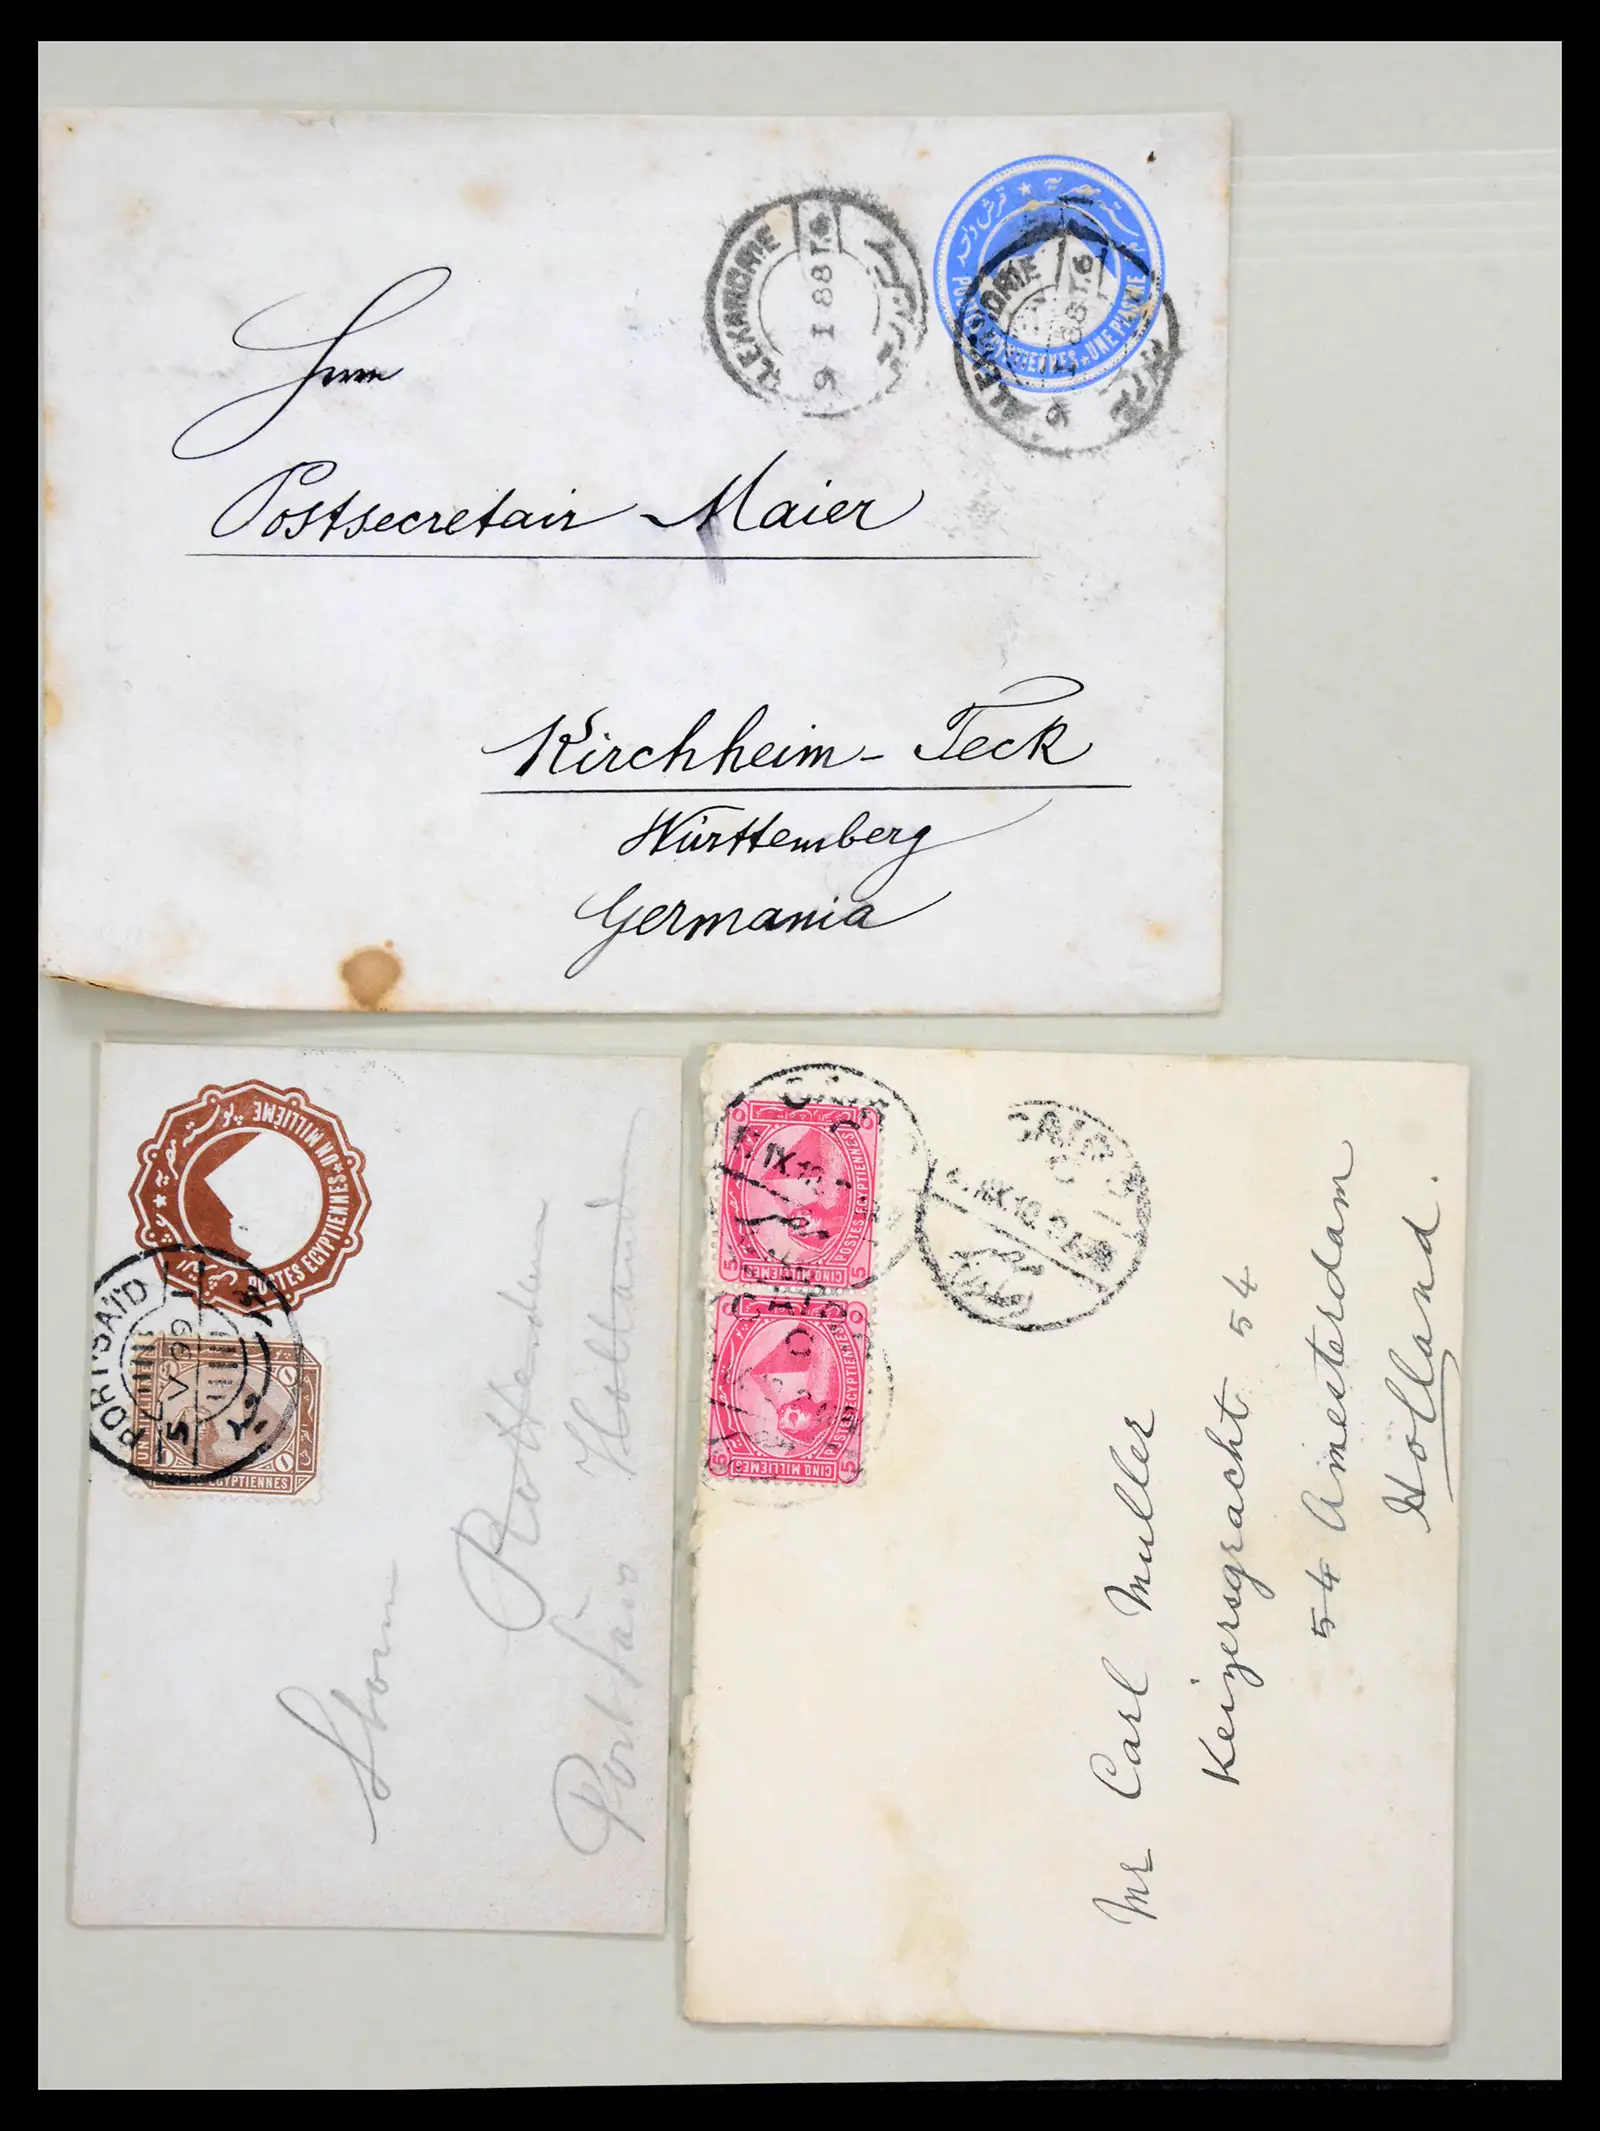 Herrn
Postsecretair Maier
Kirchheim-Teck
Württemberg
Germania
ALEXANDRIE
9 I 88 T.6
POSTES EGYPTIENNES ★ UNE PIASTRE
بوستة مصرية ★ قرش واحد
ALEXANDRIE
9 I 88 T.6
POSTES EGYPTIENNES ★ UN MILLIEME
بوستة مصرية
PORT-SAID
5 V 99
UN MILLIEME
POSTES EGYPTIENNES
1
1
Storm
Rotterdam
Holland
5
5
POSTES EGYPTIENNES
CINQ MILLIEMES
5
5
POSTES EGYPTIENNES
CINQ MILLIEMES
CAIRO
IX.10
Mr Carl Muller
Keizersgracht 54
54 Amesterdam
Holland.